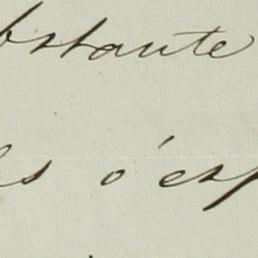 bstante
s o'esp